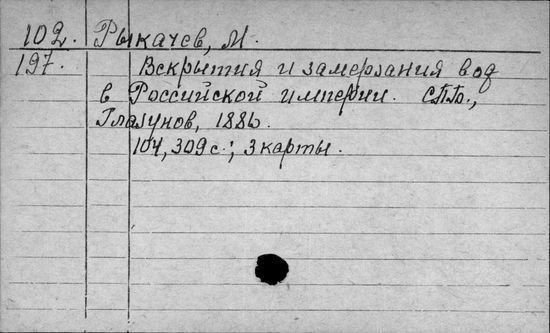 102. Рыкачев, М.
197. Вскрытия и замерзания вод
в Российской империи. СПб.,
Глазунов, 1886.
104, 309 с.; 3 карты.